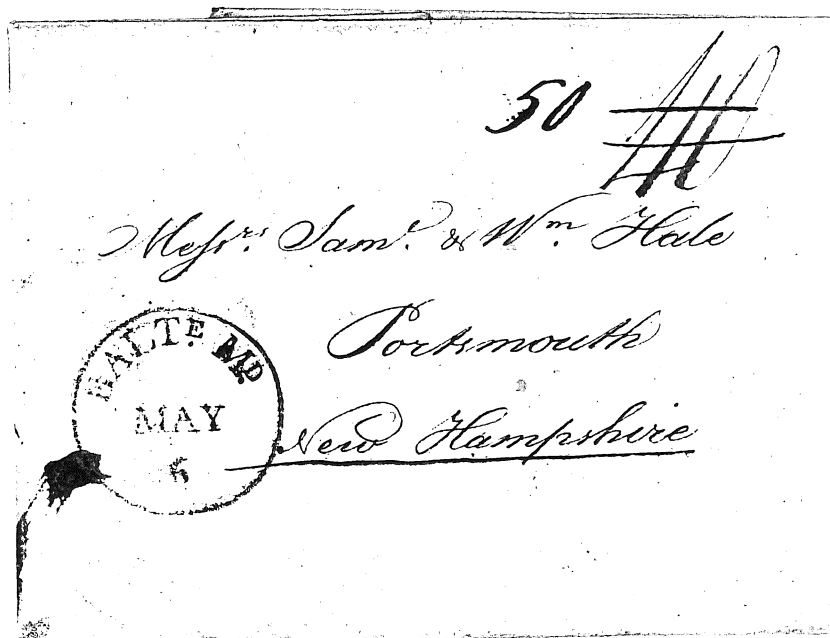 50 40
Messrs. Saml. & Wm. Hale
Portsmouth
New Hampshire
BALTE. MD.
MAY
5